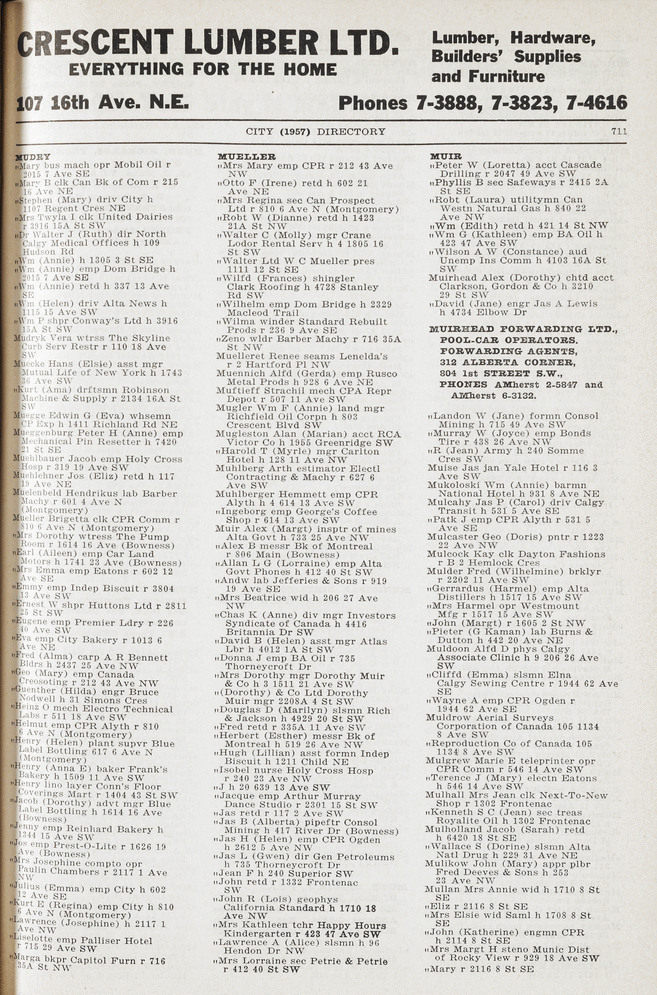 CRESCENT LUMBER LTD.
EVERYTHING FOR THE HOME
Lumber, Hardware,
Builders' Supplies
and Furniture
107 16th Ave. N.E.
Phones 7-3888, 7-3823, 7-4616
CITY (1957) DIRECTORY
711
MUDRY
"Mary bus mach opr Mobil Oil r
2015 7 Ave SE
"Mary B clk Can Bk of Com r 215
16 Ave NE
"Stephen (Mary) driv City h
1107 Regent Cres NE
"Mrs Twyla I clk United Dairies
r 3916 15A St SW
"Dr Walter J (Ruth) dir North
Calgy Medical Offices h 109
Hudson Rd
"Wm (Annie) h 1305 3 St SE
"Wm (Annie) emp Dom Bridge h
2015 7 Ave SE
"Wm (Annie) retd h 337 13 Ave
SE
"Wm (Helen) driv Alta News h
1115 15 Ave SW
"Wm P shpr Conway's Ltd h 3916
15A St SW
Mudryk Vera wtrss The Skyline
Curb Serv Restr r 110 18 Ave
SW
Muecke Hans (Elsie) asst mgr
Mutual Life of New York h 1743
36 Ave SW
"Kurt (Ama) drftsmn Robinson
Machine & Supply r 2134 16A St
SW
Muegge Edwin G (Eva) whsemn
CP Exp h 1411 Richland Rd NE
Mueggenburg Peter H (Anne) emp
Mechanical Pin Resetter h 7420
21 St SE
Muehlbauer Jacob emp Holy Cross
Hosp r 319 19 Ave SW
Muehlehner Jos (Eliz) retd h 117
19 Ave NE
Muelenbeld Hendrikus lab Barber
Machy r 601 4 Ave N
(Montgomery)
Mueller Brigetta clk CPR Comm r
810 6 Ave N (Montgomery)
"Mrs Dorothy wtress The Pump
Room r 1614 16 Ave (Bowness)
"Earl (Aileen) emp Car Land
Motors h 1741 23 Ave (Bowness)
"Mrs Emma emp Eatons r 602 12
Ave SE
"Emmy emp Indep Biscuit r 3804
13 Ave SW
"Ernest W shpr Huttons Ltd r 2811
25 St SW
"Eugene emp Premier Ldry r 226
40 Ave SW
"Eva emp City Bakery r 1013 6
Ave NE
"Fred (Alma) carp A R Bennett
Bldrs h 2437 25 Ave NW
"Geo (Mary) emp Canada
Creosoting r 212 43 Ave NW
"Guenther (Hilda) engr Bruce
Nodwell h 31 Simons Cres
"Heinz O mech Electro Technical
Labs r 511 18 Ave SW
"Helmut emp CPR Alyth r 810
6 Ave N (Montgomery)
"Henry (Helen) plant supvr Blue
Label Bottling 617 6 Ave N
(Montgomery)
"Henry (Anna E) baker Frank's
Bakery h 1509 11 Ave SW
"Henry lino layer Conn's Floor
Coverings Mart r 1404 43 St SW
"Jacob (Dorothy) advt mgr Blue
Label Bottling h 1614 16 Ave
(Bowness)
"Jenny emp Reinhard Bakery h
1344 15 Ave SW
"Jos emp Prest-O-Lite r 1626 19
Ave (Bowness)
"Mrs Josephine compto opr
Paulin Chambers r 2117 1 Ave
NW
"Julius (Emma) emp City h 602
12 Ave SE
"Kurt E (Regina) emp City h 810
6 Ave N (Montgomery)
"Lawrence (Josephine) h 2117 1
Ave NW
"Liselotte emp Palliser Hotel
r 715 29 Ave SW
"Marga bkpr Capitol Furn r 716
35A St NW
MUELLER
"Mrs Mary emp CPR r 212 43 Ave
NW
"Otto F (Irene) retd h 602 21
Ave NE
"Mrs Regina sec Can Prospect
Ltd r 810 6 Ave N (Montgomery)
"Robt W (Dianne) retd h 1423
21A St NW
"Walter C (Molly) mgr Crane
Lodor Rental Serv h 4 1805 16
St SW
"Walter Ltd W C Mueller pres
1111 12 St SE
"Wilfd (Frances) shingler
Clark Roofing h 4728 Stanley
Rd SW
"Wilhelm emp Dom Bridge h 2329
Macleod Trail
"Wilma winder Standard Rebuilt
Prods r 236 9 Ave SE
"Zeno wldr Barber Machy r 716 35A
St NW
Muelleret Renee seams Lenelda's
r 2 Hartford Pl NW
Muennich Alfd (Gerda) emp Rusco
Metal Prods h 928 6 Ave NE
Muftieff Strachil mech CPA Repr
Depot r 507 11 Ave SW
Mugler Wm F (Annie) land mgr
Richfield Oil Corpn h 803
Crescent Blvd SW
Mugleston Alan (Marian) acct RCA
Victor Co h 1955 Greenridge SW
"Harold T (Myrle) mgr Carlton
Hotel h 128 11 Ave NW
Muhlberg Arth estimator Electl
Contracting & Machy r 627 6
Ave SW
Muhlberger Hemmett emp CPR
Alyth h 4 614 13 Ave SW
"Ingeborg emp George's Coffee
Shop r 614 13 Ave SW
Muir Alex (Margt) insptr of mines
Alta Govt h 733 25 Ave NW
"Alex B messr Bk of Montreal
r 806 Main (Bowness)
"Allan L G (Lorraine) emp Alta
Govt Phones h 412 40 St SW
"Andw lab Jefferies & Sons r 919
19 Ave SE
"Mrs Beatrice wid h 206 27 Ave
NW
"Chas K (Anne) div mgr Investors
Syndicate of Canada h 4416
Britannia Dr SW
"David B (Helen) asst mgr Atlas
Lbr h 4012 1A St SW
"Donna J emp BA Oil r 735
Thorneycroft Dr
"Mrs Dorothy mgr Dorothy Muir
& Co h 3 1511 21 Ave SW
"(Dorothy) & Co Ltd Dorothy
Muir mgr 2208A 4 St SW
"Douglas D (Marilyn) slsmn Rich
& Jackson h 4929 20 St SW
"Fred retd r 335A 11 Ave SW
"Herbert (Esther) messr Bk of
Montreal h 519 26 Ave NW
"Hugh (Lillian) asst formn Indep
Biscuit h 1211 Child NE
"Isobel nurse Holy Cross Hosp
r 240 23 Ave NW
"J h 20 639 13 Ave SW
"Jacque emp Arthur Murray
Dance Studio r 2301 15 St SW
"Jas retd r 117 2 Ave SW
"Jas B (Alberta) pipeftr Consol
Mining h 417 River Dr (Bowness)
"Jas H (Helen) emp CPR Ogden
h 2612 5 Ave NW
"Jas L (Gwen) dir Gen Petroleums
h 735 Thorneycroft Dr
"Jean F h 240 Superior SW
"John retd r 1332 Frontenac
SW
"John R (Lois) geophys
California Standard h 1710 18
Ave NW
"Mrs Kathleen tchr Happy Hours
Kindergarten r 423 47 Ave SW
"Lawrence A (Alice) slsmn h 96
Hendon Dr NW
"Mrs Lorraine sec Petrie & Petrie
r 412 40 St SW
MUIR
"Peter W (Loretta) acct Cascade
Drilling r 2047 49 Ave SW
"Phyllis B sec Safeways r 2415 2A
St SE
"Robt (Laura) utilitymn Can
Westn Natural Gas h 840 22
Ave NW
"Wm (Edith) retd h 421 14 St NW
"Wm G (Kathleen) emp BA Oil h
423 47 Ave SW
"Wilson A W (Constance) aud
Unemp Ins Comm h 4103 16A St
SW
Muirhead Alex (Dorothy) chtd acct
Clarkson, Gordon & Co h 3210
29 St SW
"David (Jane) engr Jas A Lewis
h 4734 Elbow Dr
MUIRHEAD FORWARDING LTD.,
POOL-CAR OPERATORS,
FORWARDING AGENTS,
312 ALBERTA CORNER,
804 1st STREET S.W.,
PHONES AMherst 2-5847 and
AMherst 6-3132.
"Landon W (Jane) formn Consol
Mining h 715 49 Ave SW
"Murray W (Joyce) emp Bonds
Tire r 438 26 Ave NW
"R (Jean) Army h 240 Somme
Cres SW
Muise Jas jan Yale Hotel r 116 3
Ave SW
Mukoloski Wm (Annie) barmn
National Hotel h 931 8 Ave NE
Mulcahy Jas P (Carol) driv Calgy
Transit h 531 5 Ave SE
"Patk J emp CPR Alyth r 531 5
Ave SE
Mulcaster Geo (Doris) pntr r 1223
22 Ave NW
Mulcock Kay clk Dayton Fashions
r B 2 Hemlock Cres
Mulder Fred (Wilhelmine) brklyr
r 2202 11 Ave SW
"Gerrardus (Harmel) emp Alta
Distillers h 1517 15 Ave SW
"Mrs Harmel opr Westmount
Mfg r 1517 15 Ave SW
"John (Margt) r 1605 2 St NW
"Pieter (G Kaman) lab Burns &
Dutton h 442 20 Ave NE
Muldoon Alfd D phys Calgy
Associate Clinic h 9 206 26 Ave
SW
"Cliffd (Emma) slsmn Elna
Calgy Sewing Centre r 1944 62 Ave
SE
"Wayne A emp CPR Ogden r
1944 62 Ave SE
Muldrow Aerial Surveys
Corporation of Canada 105 1134
8 Ave SW
"Reproduction Co of Canada 105
1134 8 Ave SW
Mulgrew Marie E teleprinter opr
CPR Comm r 546 14 Ave SW
"Terence J (Mary) electn Eatons
h 546 14 Ave SW
Mulhall Mrs Jean clk Next-To-New
Shop r 1302 Frontenac
"Kenneth S C (Jean) sec treas
Royalite Oil h 1302 Frontenac
Mulholland Jacob (Sarah) retd
h 6420 18 St SE
"Wallace S (Dorine) slsmn Alta
Natl Drug h 229 31 Ave NE
Mulikow John (Mary) appr plbr
Fred Deeves & Sons h 253
23 Ave NW
Mullan Mrs Annie wid h 1710 8 St
SE
"Eliz r 2116 8 St SE
"Mrs Elsie wid Saml h 1708 8 St
SE
"John (Katherine) engmn CPR
h 2114 8 St SE
"Mrs Margt H steno Munic Dist
of Rocky View r 929 18 Ave SW
"Mary r 2116 8 St SE